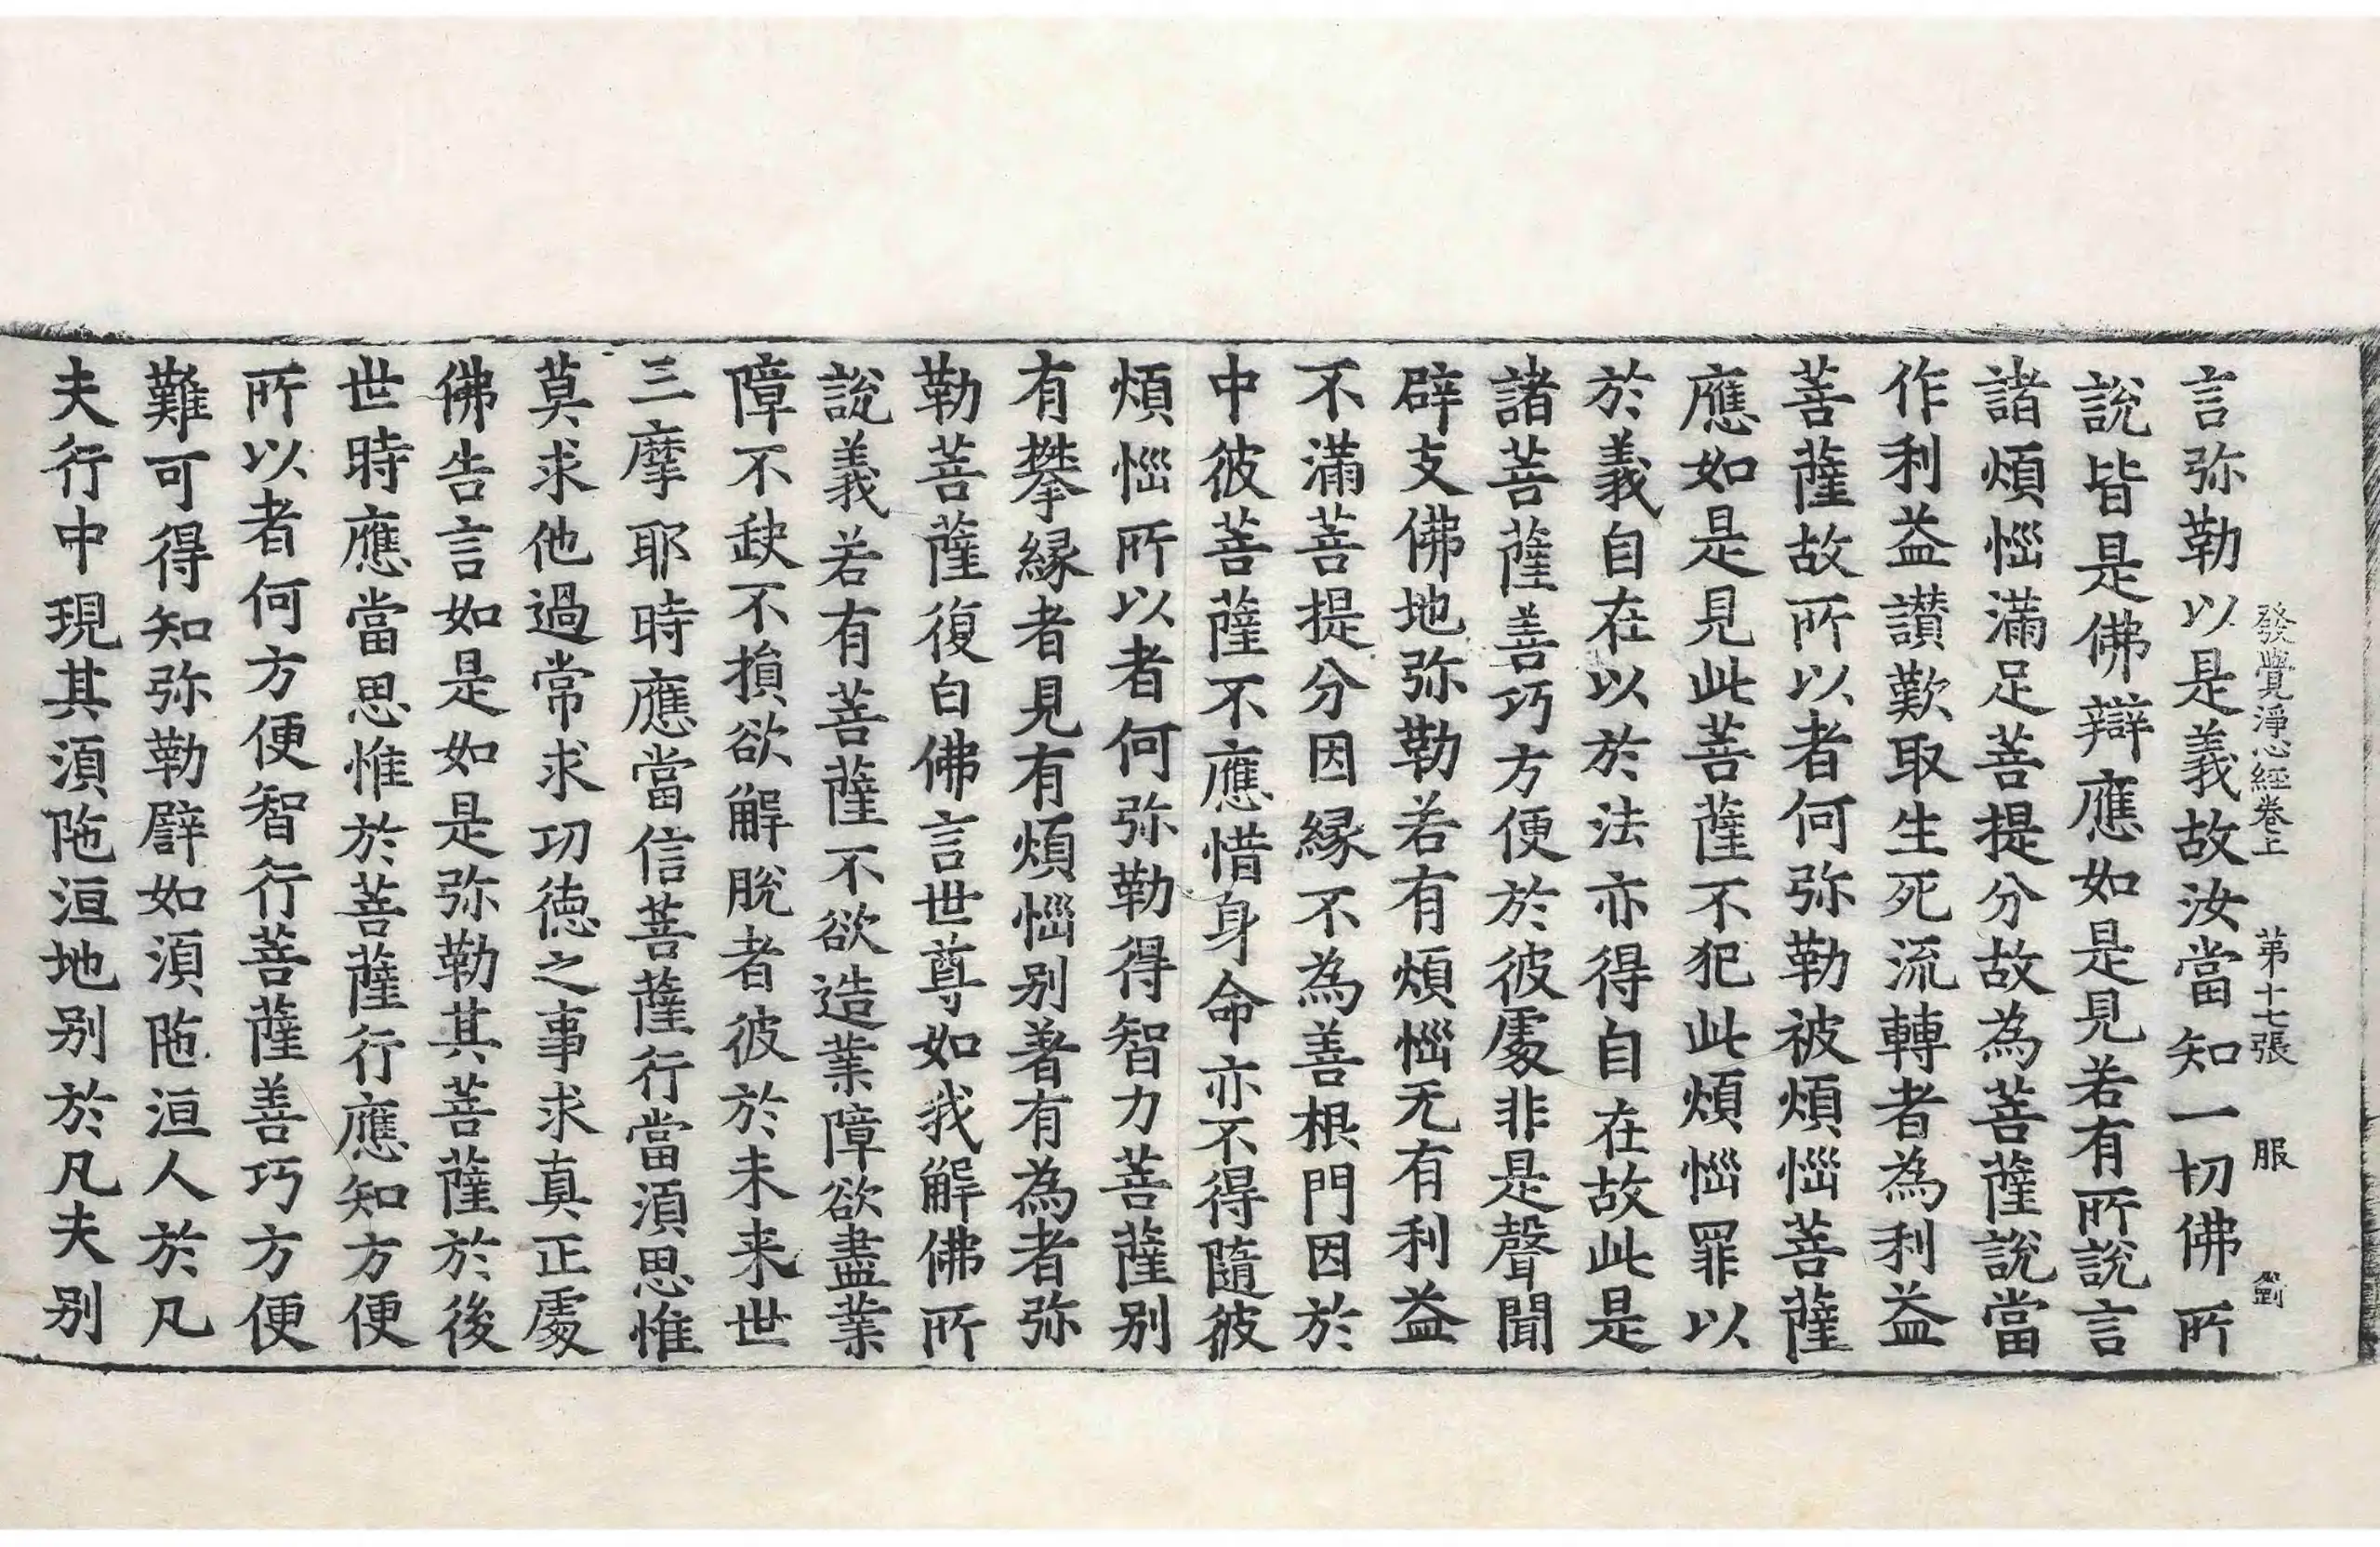 發覺淨心經卷上 苐十七張 服 劉
言弥勒以是義故汝當知一切佛所
說皆是佛辯應如是見若有所說言
諸煩惱滿足菩提分故為菩薩說當
作利益讃歎取生死流轉者為利益
菩薩故所以者何弥勒被煩惱菩薩
應如是見此菩薩不犯此煩惱罪以
於義自在以於法亦得自在故此是
諸菩薩善巧方便於彼處非是聲聞
辟支佛地弥勒若有煩惱无有利益
不滿菩提分因縁不為善根門因於
中彼菩薩不應惜身命亦不得隨彼
煩惱所以者何弥勒得智力菩薩别
有攀縁者見有煩惱别著有為者弥
勒菩薩復白佛言世尊如我解佛所
說義若有菩薩不欲造業障欲盡業
障不䟽不損欲解脫者彼於未来世
三摩耶時應當信菩薩行當湏思惟
莫求他過常求功徳之事求真正處
佛告言如是如是弥勒其菩薩於後
世時應當思惟於菩薩行應知方便
所以者何方便智行菩薩善巧方便
難可得知弥勒譬如湏陁洹人於凡
夫行中現其湏陁洹地别於凡夫别